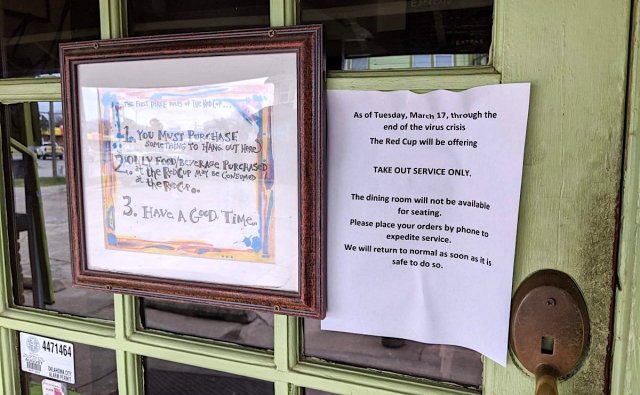 THE FIRST THREE RULES OF THE RED CUP...
1. YOU MUST PURCHASE
SOMETHING TO HANG OUT HERE)
2. ONLY FOOD/BEVERAGE PURCHASED
at the RED CUP MAY BE CONSUMED
at the RED CUP...
3. HAVE A GOOD TIME...
As of Tuesday, March 17, through the
end of the virus crisis
The Red Cup will be offering
TAKE OUT SERVICE ONLY.
The dining room will not be available
for seating.
Please place your orders by phone to
expedite service.
We will return to normal as soon as it is
safe to do so.
4471464
OKLAHOMA CITY
ALARM PERMIT